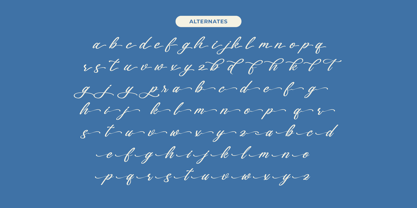 ALTERNATES
a b c d e f g h i j k l m n o p q
r s t u v w x y z b d f h k l t
g j y p z a b c d e f g
h i j k l m n o p q r
s t u v w x y z a b c d
e f g h i j k l m n o
p q r s t u v w x y z